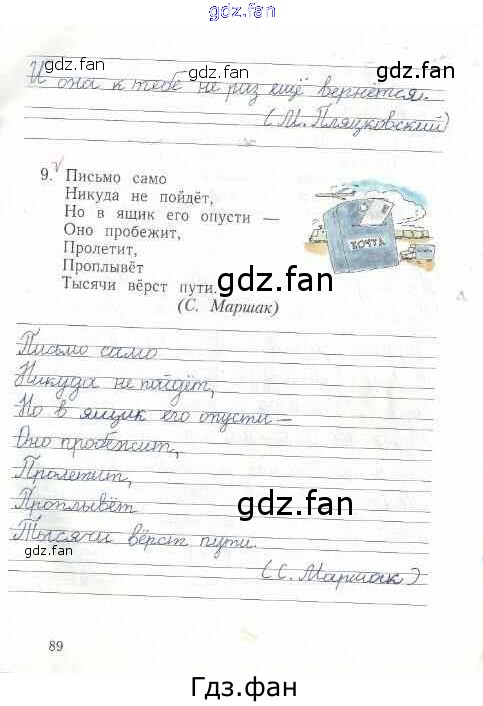 gdz.fan
И она к тебе не раз ещё вернётся.
gdz.fan gdz.fan gdz.fan
(М. Пляцковский)
9. Письмо само
Никуда не пойдёт,
Но в ящик его опусти —
Оно пробежит,
Пролетит,
Проплывёт
Тысячи вёрст пути.
(С. Маршак)
ПОЧТА
gdz.fan
Письмо само
Никуда не пойдёт,
Но в ящик его опусти —
Оно пробежит,
Пролетит,
Проплывёт
gdz.fan
Тысячи вёрст пути.
gdz.fan
(С. Маршак)
89
Гдз.фан